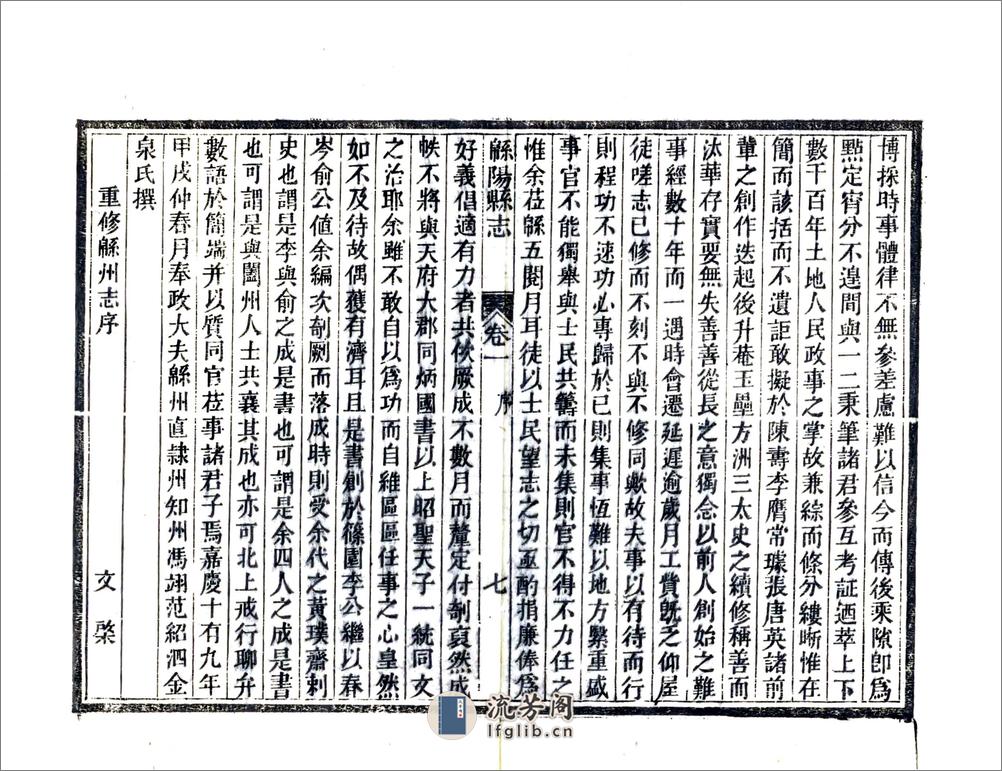 博採時事體律不無參差慮難以信今而傳後乘隙卽爲
㸃定宵分不遑間與一二秉筆諸君參互考証迺萃上下
數千百年土地人民政事之掌故兼綜而條分縷晰惟在
簡而該括而不遺詎敢擬於陳壽李膺常璩張唐英諸前
軰之創作迭起後升菴玉壘方洲三太史之續修稱善而
汰華存實要無失善善從長之意獨念以前人創始之難
事經數十年而一遇時會遷延遲逾歲月工貲旣乏仰屋
徒嗟志已修而不刻不與不修同歟故夫事以有待而行
則程功不速功必專歸於已則集事恆難以地方繁重盛
事官不能獨舉與士民共籌而未集則官不得不力任之
惟余莅緜五閱月耳徒以士民望志之切亟酌捐廉俸爲
緜陽縣志 卷一 序 七
好義倡適有力者共佽厥成不數月而釐定付剞戛然成
帙不將與天府大郡同炳國書以上昭聖天子一統同文
之治耶余雖不敢自以爲功而自維區區任事之心皇然
如不及待故偶獲有濟耳且是書創於篠園李公繼以春
岑俞公值余編次剞劂而落成時則受余代之黃璞齋刺
史也可謂是李與俞之成是書也可謂是余四人之成是書
也可謂是與闔州人士共襄其成也亦可北上戒行聊弁
數語於簡端并以質同官莅事諸君子焉嘉慶十有九年
甲戌仲春月奉政大夫緜州直隸州知州馮翊范紹泗金
泉氏撰
重修緜州志序 文棨
流芳阁
lfglib.cn